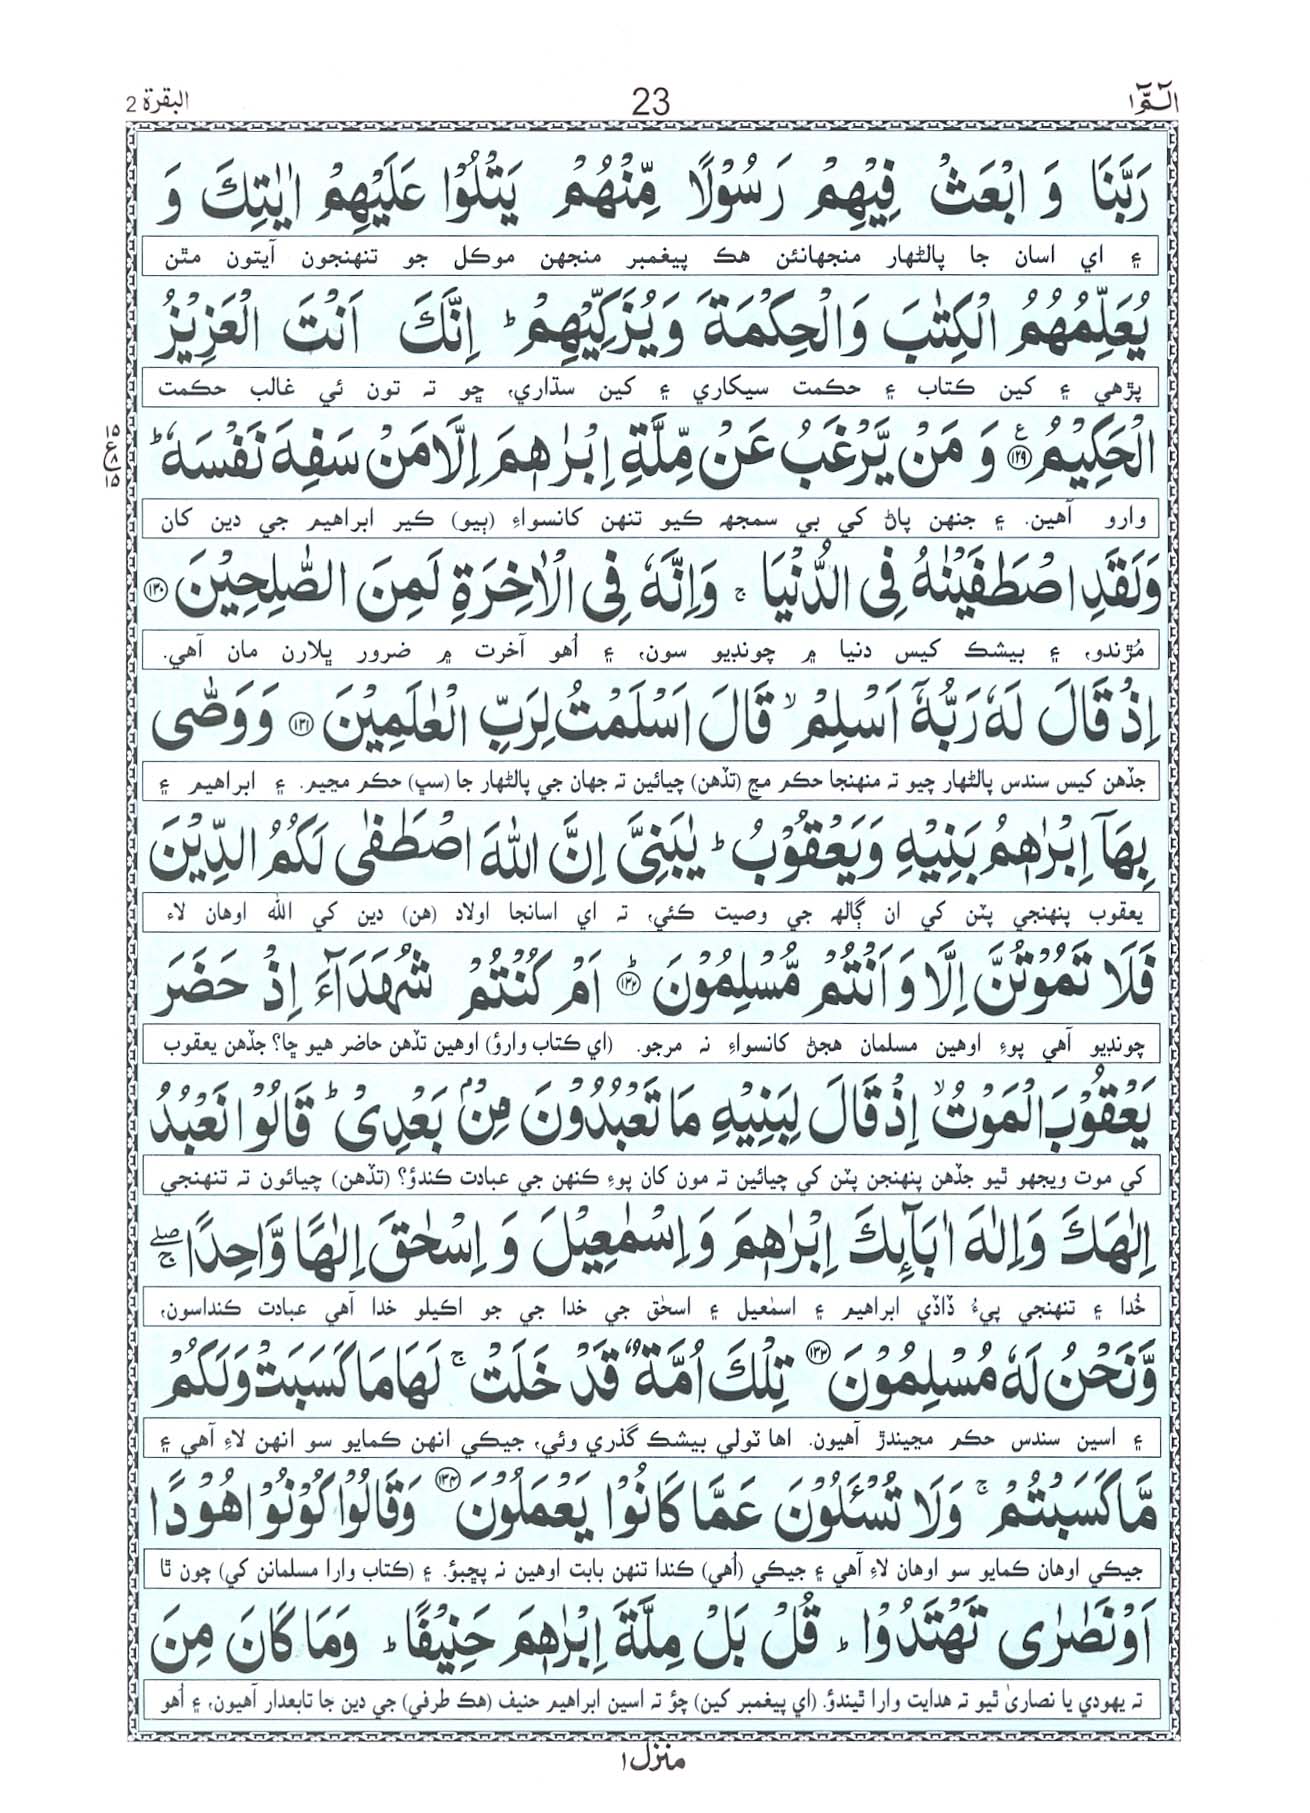 الٓمّٓ ۱ 23 البقرة 2
رَبَّنَا وَ ابْعَثْ فِيْهِمْ رَسُوْلًا مِّنْهُمْ يَتْلُوْا عَلَيْهِمْ اٰيٰتِكَ وَ
۽ اي اسان جا پالڻهار منجهانئن هڪ پيغمبر منجهن موڪل جو تنهنجون آيتون مٿن
يُعَلِّمُهُمُ الْكِتٰبَ وَالْحِكْمَةَ وَيُزَكِّيْهِمْ ؕ اِنَّكَ اَنْتَ الْعَزِيْزُ
پڙهي ۽ کين ڪتاب ۽ حڪمت سيکاري ۽ کين سڌاري، ڇو تہ تون ئي غالب حڪمت
الْحَكِيْمُ ﴿۱۲۹﴾ وَ مَنْ يَّرْغَبُ عَنْ مِّلَّةِ اِبْرٰهٖمَ اِلَّا مَنْ سَفِهَ نَفْسَهٗ ؕ
۱۵ ع ۸ ۱۵
وارو آهين. ۽ جنهن پاڻ کي بي سمجهہ ڪيو تنهن کانسواءِ (ٻيو) ڪير ابراهيم جي دين کان
وَلَقَدِ اصْطَفَيْنٰهُ فِى الدُّنْيَا ۚ وَاِنَّهٗ فِى الْاٰخِرَةِ لَمِنَ الصّٰلِحِيْنَ ﴿۱۳۰﴾
مُڙندو، ۽ بيشڪ کيس دنيا ۾ چونڊيو سون، ۽ اُهو آخرت ۾ ضرور ڀلارن مان آهي.
اِذْ قَالَ لَهٗ رَبُّهٗٓ اَسْلِمْ ۙ قَالَ اَسْلَمْتُ لِرَبِّ الْعٰلَمِيْنَ ﴿۱۳۱﴾ وَ وَصّٰى
جڏهن کيس سندس پالڻهار چيو تہ منهنجا حڪم مڃ (تڏهن) چيائين تہ جهان جي پالڻهار جا (سڀ) حڪم مڃيم. ۽ ابراهيم ۽
بِهَآ اِبْرٰهٖمُ بَنِيْهِ وَيَعْقُوْبُ ؕ يٰبَنِىَّ اِنَّ اللّٰهَ اصْطَفٰى لَكُمُ الدِّيْنَ
يعقوب پنهنجي پٽن کي ان ڳالهہ جي وصيت ڪئي، تہ اي اسانجا اولاد (هن) دين کي الله اوهان لاءِ
فَلَا تَمُوْتُنَّ اِلَّا وَ اَنْتُمْ مُّسْلِمُوْنَ ﴿۱۳۲﴾ؕ اَمْ كُنْتُمْ شُهَدَآءَ اِذْ حَضَرَ
چونڊيو آهي پوءِ اوهين مسلمان هجڻ کانسواءِ نہ مرجو. (اي ڪتاب وارؤ) اوهين تڏهن حاضر هيو ڇا؟ جڏهن يعقوب
يَعْقُوْبَ الْمَوْتُ ۙ اِذْ قَالَ لِبَنِيْهِ مَا تَعْبُدُوْنَ مِنْۢ بَعْدِىْ ؕ قَالُوْا نَعْبُدُ
کي موت ويجهو ٿيو جڏهن پنهنجن پٽن کي چيائين تہ مون کان پوءِ ڪنهن جي عبادت ڪندؤ؟ (تڏهن) چيائون تہ تنهنجي
اِلٰهَكَ وَاِلٰهَ اٰبَآئِكَ اِبْرٰهٖمَ وَ اِسْمٰعِيْلَ وَ اِسْحٰقَ اِلٰهًا وَّاحِدًا ۖۚ
خُدا ۽ تنهنجي پيءُ ڏاڏي ابراهيم ۽ اسمٰعيل ۽ اسحٰق جي خدا جي جو اڪيلو خدا آهي عبادت ڪنداسون،
وَّنَحْنُ لَهٗ مُسْلِمُوْنَ ﴿۱۳۳﴾ تِلْكَ اُمَّةٌ قَدْ خَلَتْ ۚ لَهَا مَا كَسَبَتْ وَلَكُمْ
۽ اسين سندس حڪم مڃيندڙ آهيون. اها ٽولي بيشڪ گذري وئي، جيڪي انهن ڪمايو سو انهن لاءِ آهي ۽
مَّا كَسَبْتُمْ ۚ وَلَا تُسْـَٔلُوْنَ عَمَّا كَانُوْا يَعْمَلُوْنَ ﴿۱۳۴﴾ وَقَالُوْا كُوْنُوْا هُوْدًا
جيڪي اوهان ڪمايو سو اوهان لاءِ آهي ۽ جيڪي (اُهي) ڪندا تنهن بابت اوهين نہ پڇبؤ. ۽ (ڪتاب وارا مسلمانن کي) چون ٿا
اَوْ نَصٰرٰى تَهْتَدُوْا ؕ قُلْ بَلْ مِلَّةَ اِبْرٰهٖمَ حَنِيْفًا ؕ وَمَا كَانَ مِنَ
تہ يهودي يا نصاريٰ ٿيو تہ هدايت وارا ٿيندؤ. (اي پيغمبر کين) چؤ تہ اسين ابراهيم حنيف (هڪ طرفي) جي دين جا تابعدار آهيون، ۽ اُهو
منزل ۱